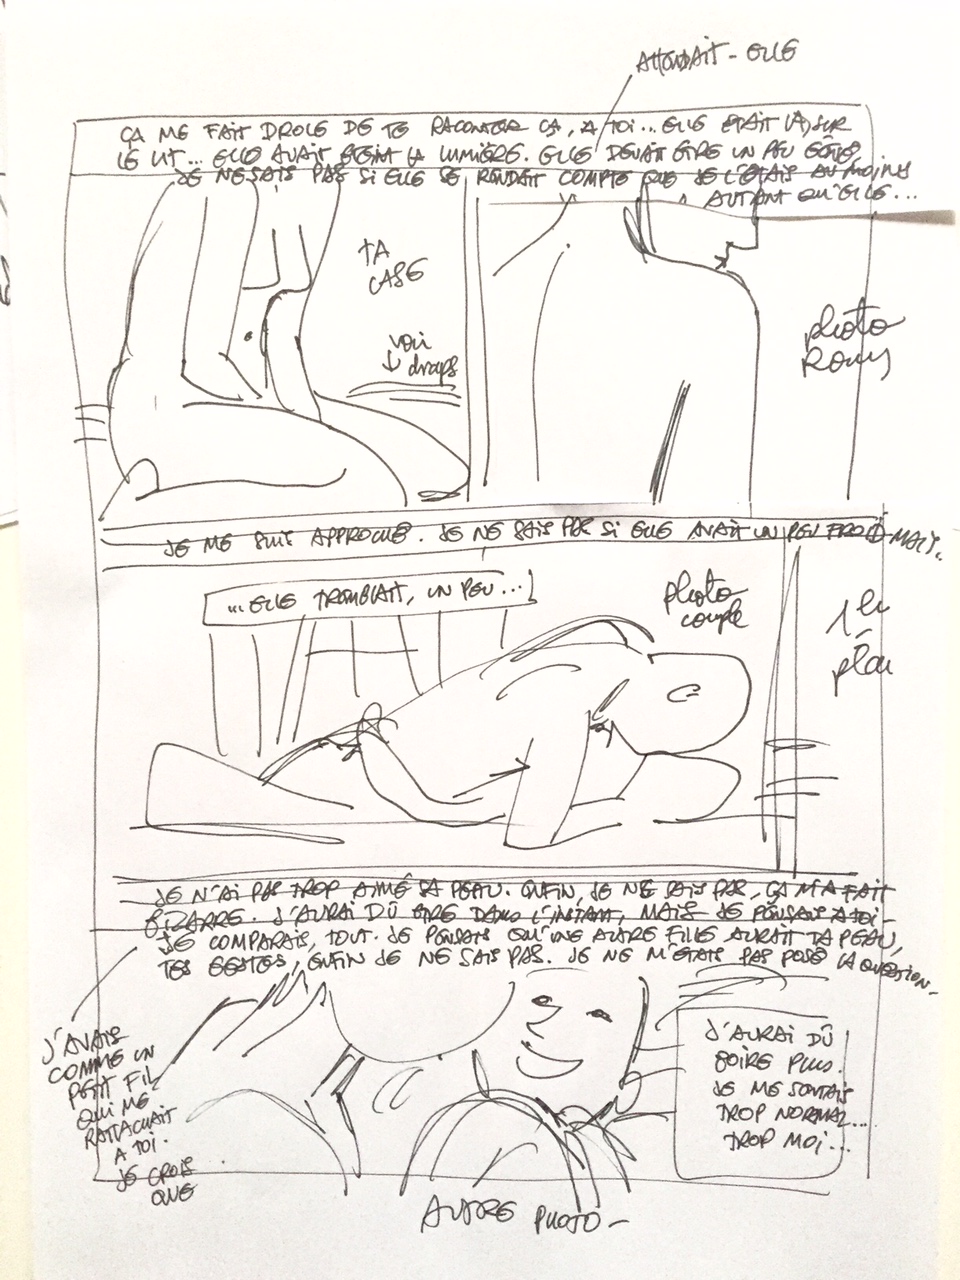 ATTENDAIT-ELLE
ÇA ME FAIT DROLE DE TE RACONTER ÇA, A TOI... ELLE ÉTAIT LÀ, SUR
LE LIT... ELLE AVAIT ÉTEINT LA LUMIÈRE. ELLE DEVAIT ÊTRE UN PEU GÊNÉE,
JE NE SAIS PAS SI ELLE SE RENDAIT COMPTE QUE JE L'ÉTAIS AU MOINS
AUTANT QU'ELLE...
TA
CASE
voir
draps
photo
JE ME SUIS APPROCHÉ. JE NE SAIS PAS SI ELLE AVAIT UN PEU FROID MAIS..
...ELLE TREMBLAIT, UN PEU...
photo
couple
1er
plan
JE N'AI PAS TROP AIMÉ SA PEAU. ENFIN, JE NE SAIS PAS, ÇA M'A FAIT
BIZARRE. J'AURAI DÛ ÊTRE DANS L'INSTANT, MAIS JE PENSAIS A TOI-
JE COMPARAIS, TOUT. JE PENSAIS QU'UNE AUTRE FILLE AURAIT TA PEAU,
TES GESTES, ENFIN JE NE SAIS PAS. JE NE M'ÉTAIS PAS POSÉ LA QUESTION-
J'AVAIS
COMME UN
PETIT FIL
QUI ME
RATTACHAIT
A TOI.
JE CROIS
QUE
J'AURAI DÛ
BOIRE PLUS.
JE ME SENTAIS
TROP NORMAL...
TROP MOI...
AUTRE PHOTO-